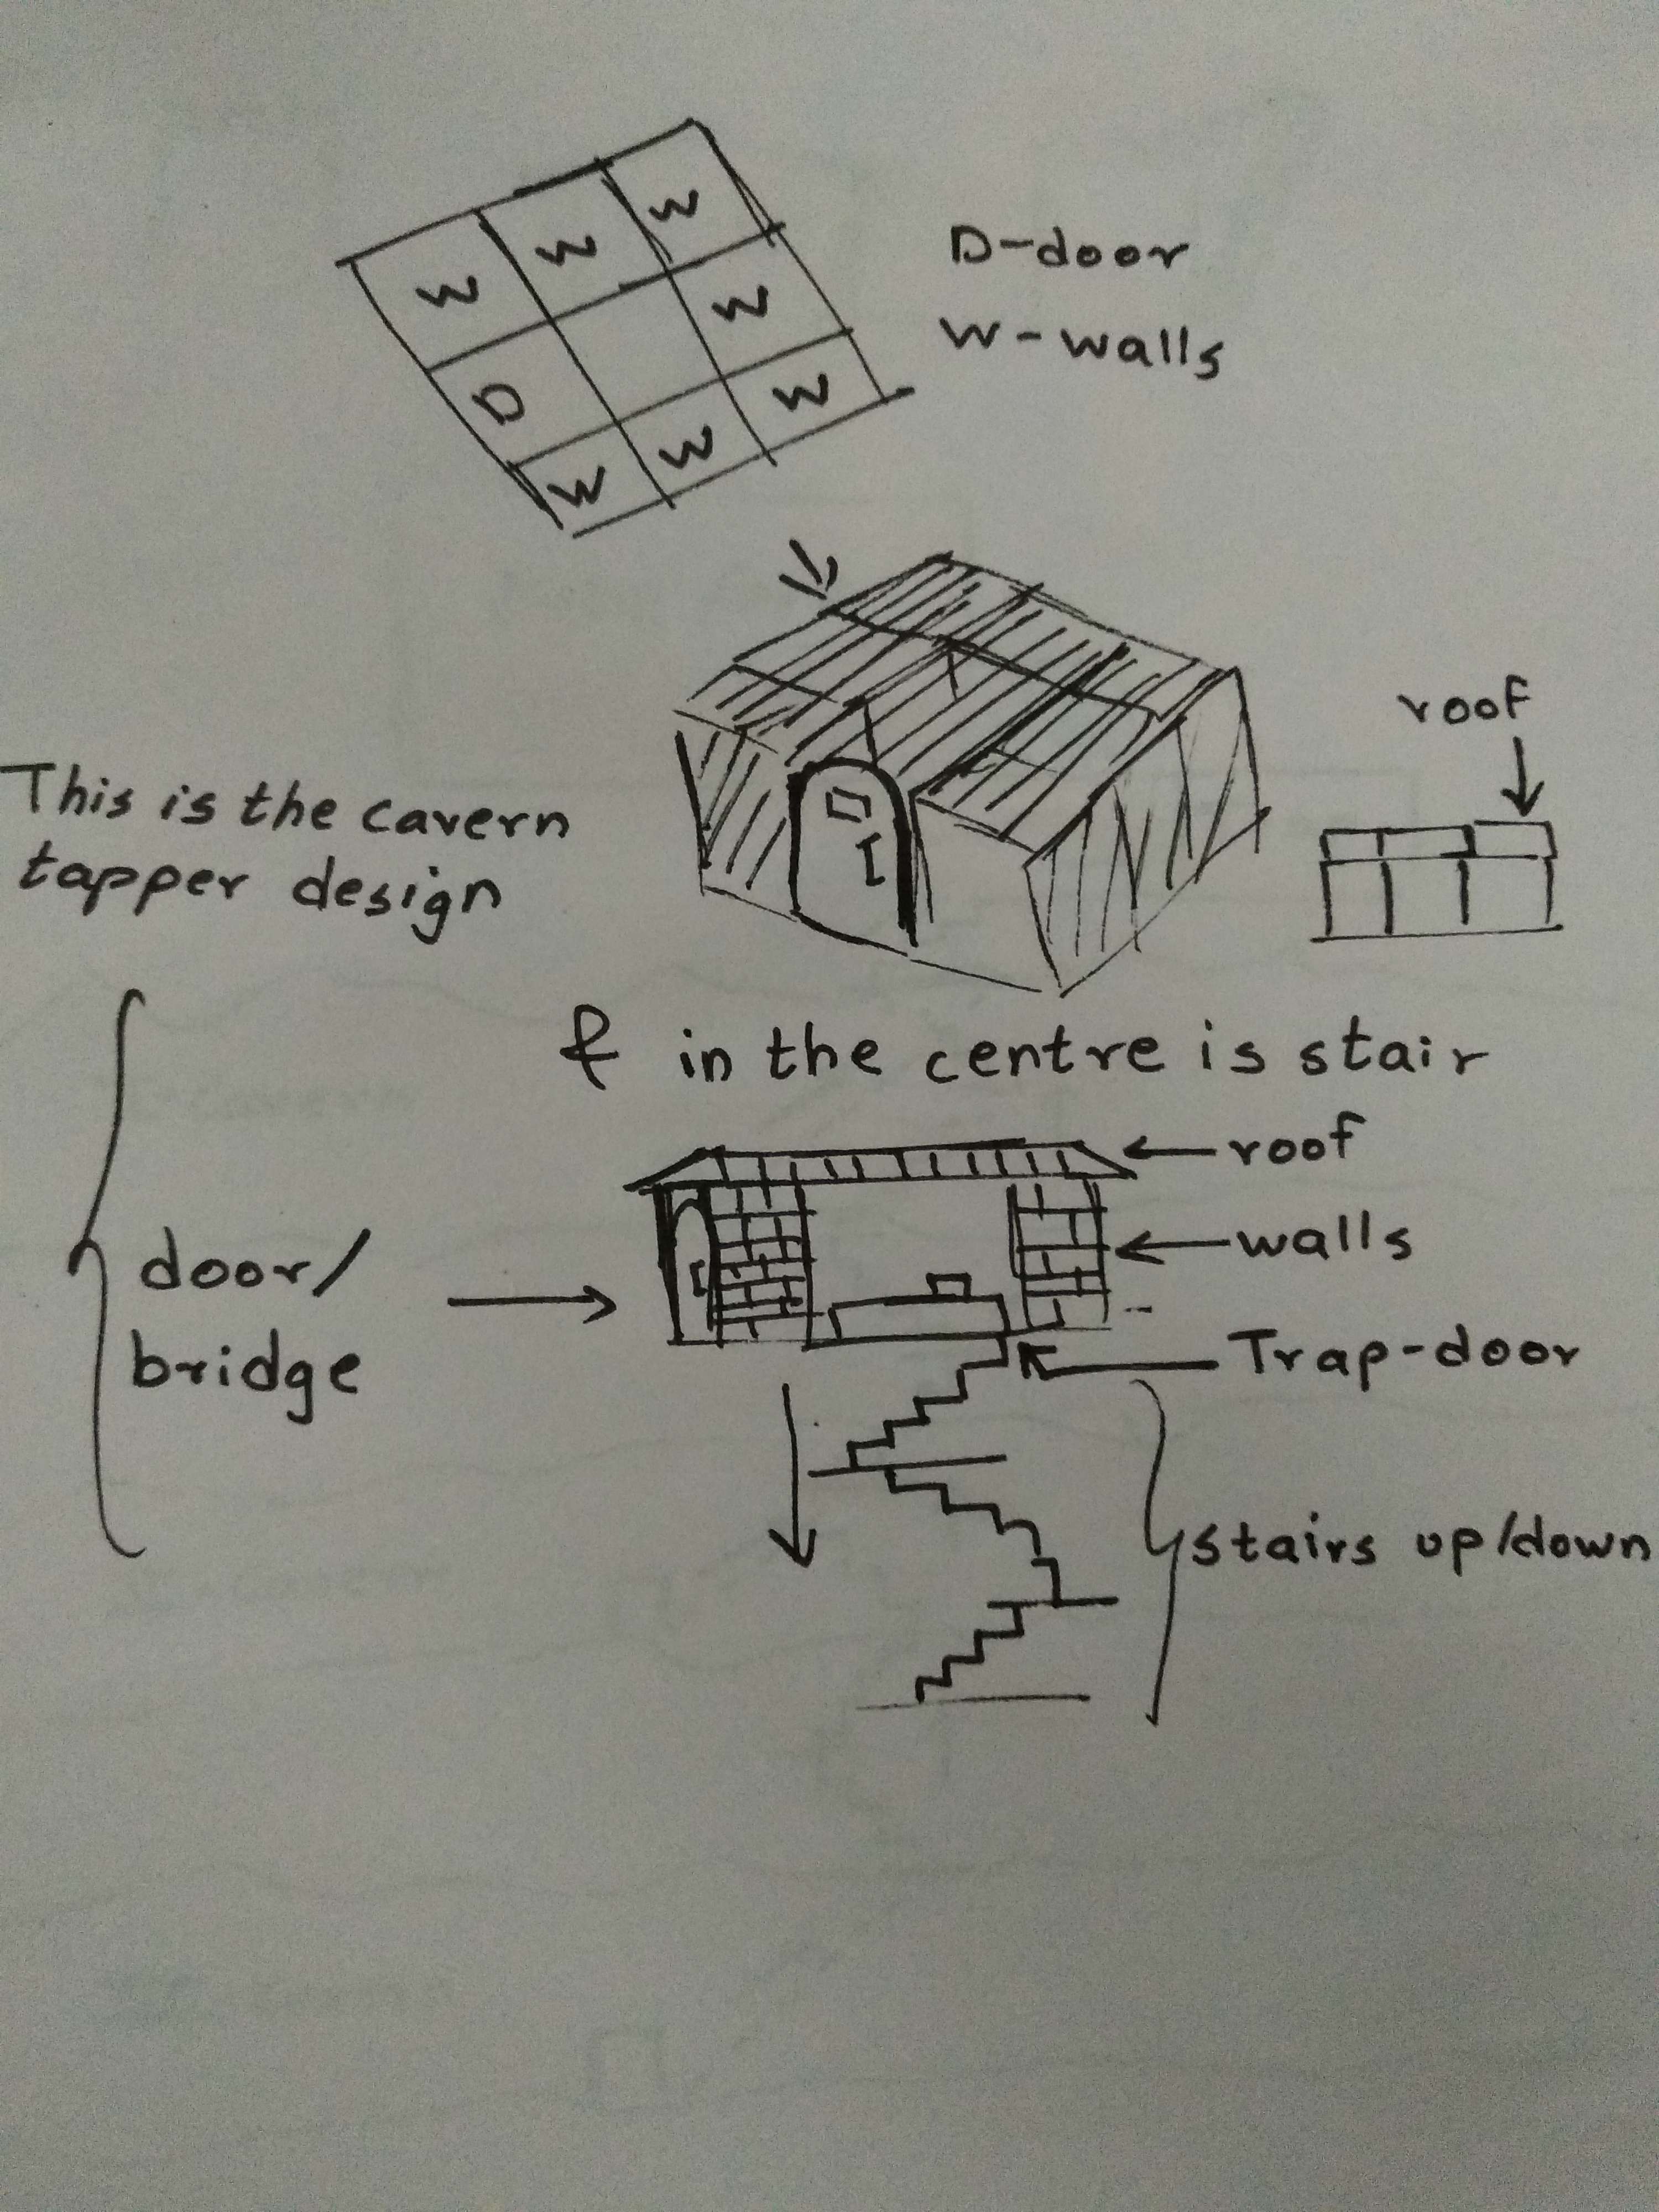 W W W
D-door
W
W-walls
D
W
W W
roof
This is the cavern
tapper design
& in the centre is stair
roof
walls
door/
bridge
Trap-door
stairs up/down